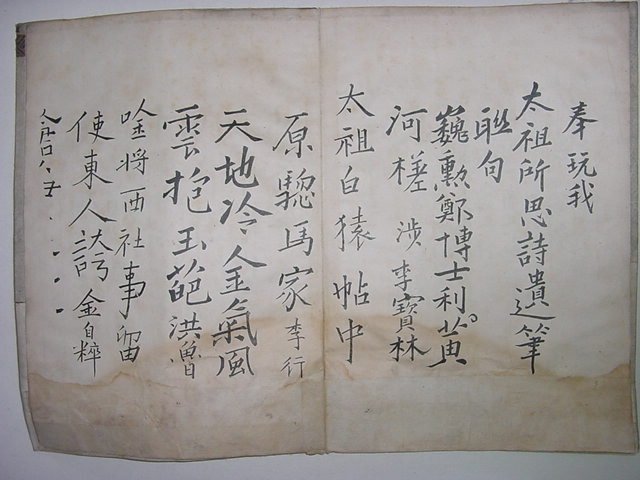 奉玩我
太祖所思詩遺筆
聯句
巍勲鄭博士利黄
河槎涉李寶林
太祖白猿帖中
原驄馬家李行
天地冷金氣風
雲抱玉葩洪魯
唫將西社事留
使東人誇金自粹